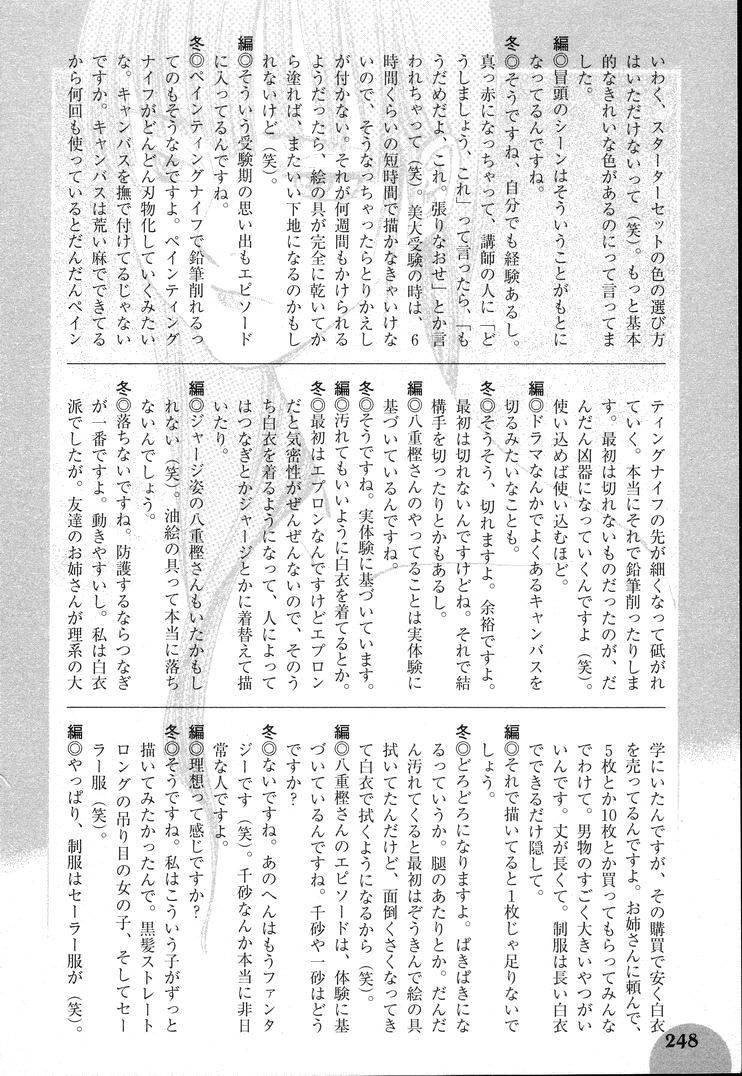 いわく、スターターセットの色の選び方
はいただけないって（笑）。もっと基本
的なきれいな色があるのにって言ってま
した。
編◎冒頭のシーンはそういうことがもとに
なってるんですね。
冬◎そうですね、自分でも経験あるし。
真っ赤になっちゃって、講師の人に「ど
うしましょう、これ」って言ったら、「も
うだめだよ、これ。張りなおせ」とか言
われちゃって（笑）美大受験の時は、6
時間くらいの短時間で描かなきゃいけな
いので、そうなっちゃったらとりかえし
が付かない。それが何週間もかけられる
ようだったら、絵の具が完全に乾いてか
ら塗れば、またいい下地になるのかもし
れないけど（笑）。
編◎そういう受験期の思い出もエピソード
に入ってるんですね。
冬◎ペインティングナイフで鉛筆削れるっ
てのもそうなんですよ。ペインティング
ナイフがどんどん刃物化していくみたい
な。キャンバスを撫で付けてるじゃない
ですか。キャンバスは荒い麻でできてる
から何回も使っているとだんだんペイン
ティングナイフの先が細くなって砥がれ
ていく。本当にそれで鉛筆削ったりしま
す。最初は切れないものだったのが、だ
んだん凶器になっていくんですよ（笑）。
使い込めば使い込むほど。
編◎ドラマなんかでよくあるキャンバスを
切るみたいなことも。
冬◎そうそう、切れますよ。余裕ですよ。
最初は切れないんですけどね。それで結
構手を切ったりとかもあるし。
編◎八重樫さんのやってることは実体験に
基づいているんですね。
冬◎そうですね。実体験に基づいています。
編◎汚れてもいいように白衣を着てるとか。
冬◎最初はエプロンなんですけどエプロン
だと気密性がぜんぜんないので、そのう
ち白衣を着るようになって、人によって
はつなぎとかジャージとかに着替えて描
いたり。
編◎ジャージ姿の八重樫さんもいたかもし
れない（笑）。油絵の具って本当に落ち
ないんでしょう。
冬◎落ちないですね。防護するならつなぎ
が一番ですよ。動きやすいし。私は白衣
派でしたが。友達のお姉さんが理系の大
学にいたんですが、その購買で安く白衣
を売ってるんですよ。お姉さんに頼んで、
5枚とか10枚とか買ってもらってみんな
でわけて。男物のすごく大きいやつがい
いんです。丈が長くて。制服は長い白衣
でできるだけ隠して。
編◎それで描いてると1枚じゃ足りないで
しょう。
冬◎どろどろになりますよ。ぱきぱきにな
るっていうか。腿のあたりとか。だんだ
ん汚れてくると最初はぞうきんで絵の具
拭いてたんだけど、面倒くさくなってき
て白衣で拭くようになるから（笑）。
編◎八重樫さんのエピソードは、体験に基
づいているんですね。千砂や一砂はどう
ですか？
冬◎ないですね。あのへんはもうファンタ
ジーです（笑）。千砂なんか本当に非日
常な人ですよ。
編◎理想って感じですか？
冬◎そうですね。私はこういう子がずっと
描いてみたかったんで。黒髪ストレート
ロングの吊り目の女の子、そしてセー
ラー服（笑）。
編◎やっぱり、制服はセーラー服が（笑）。
248